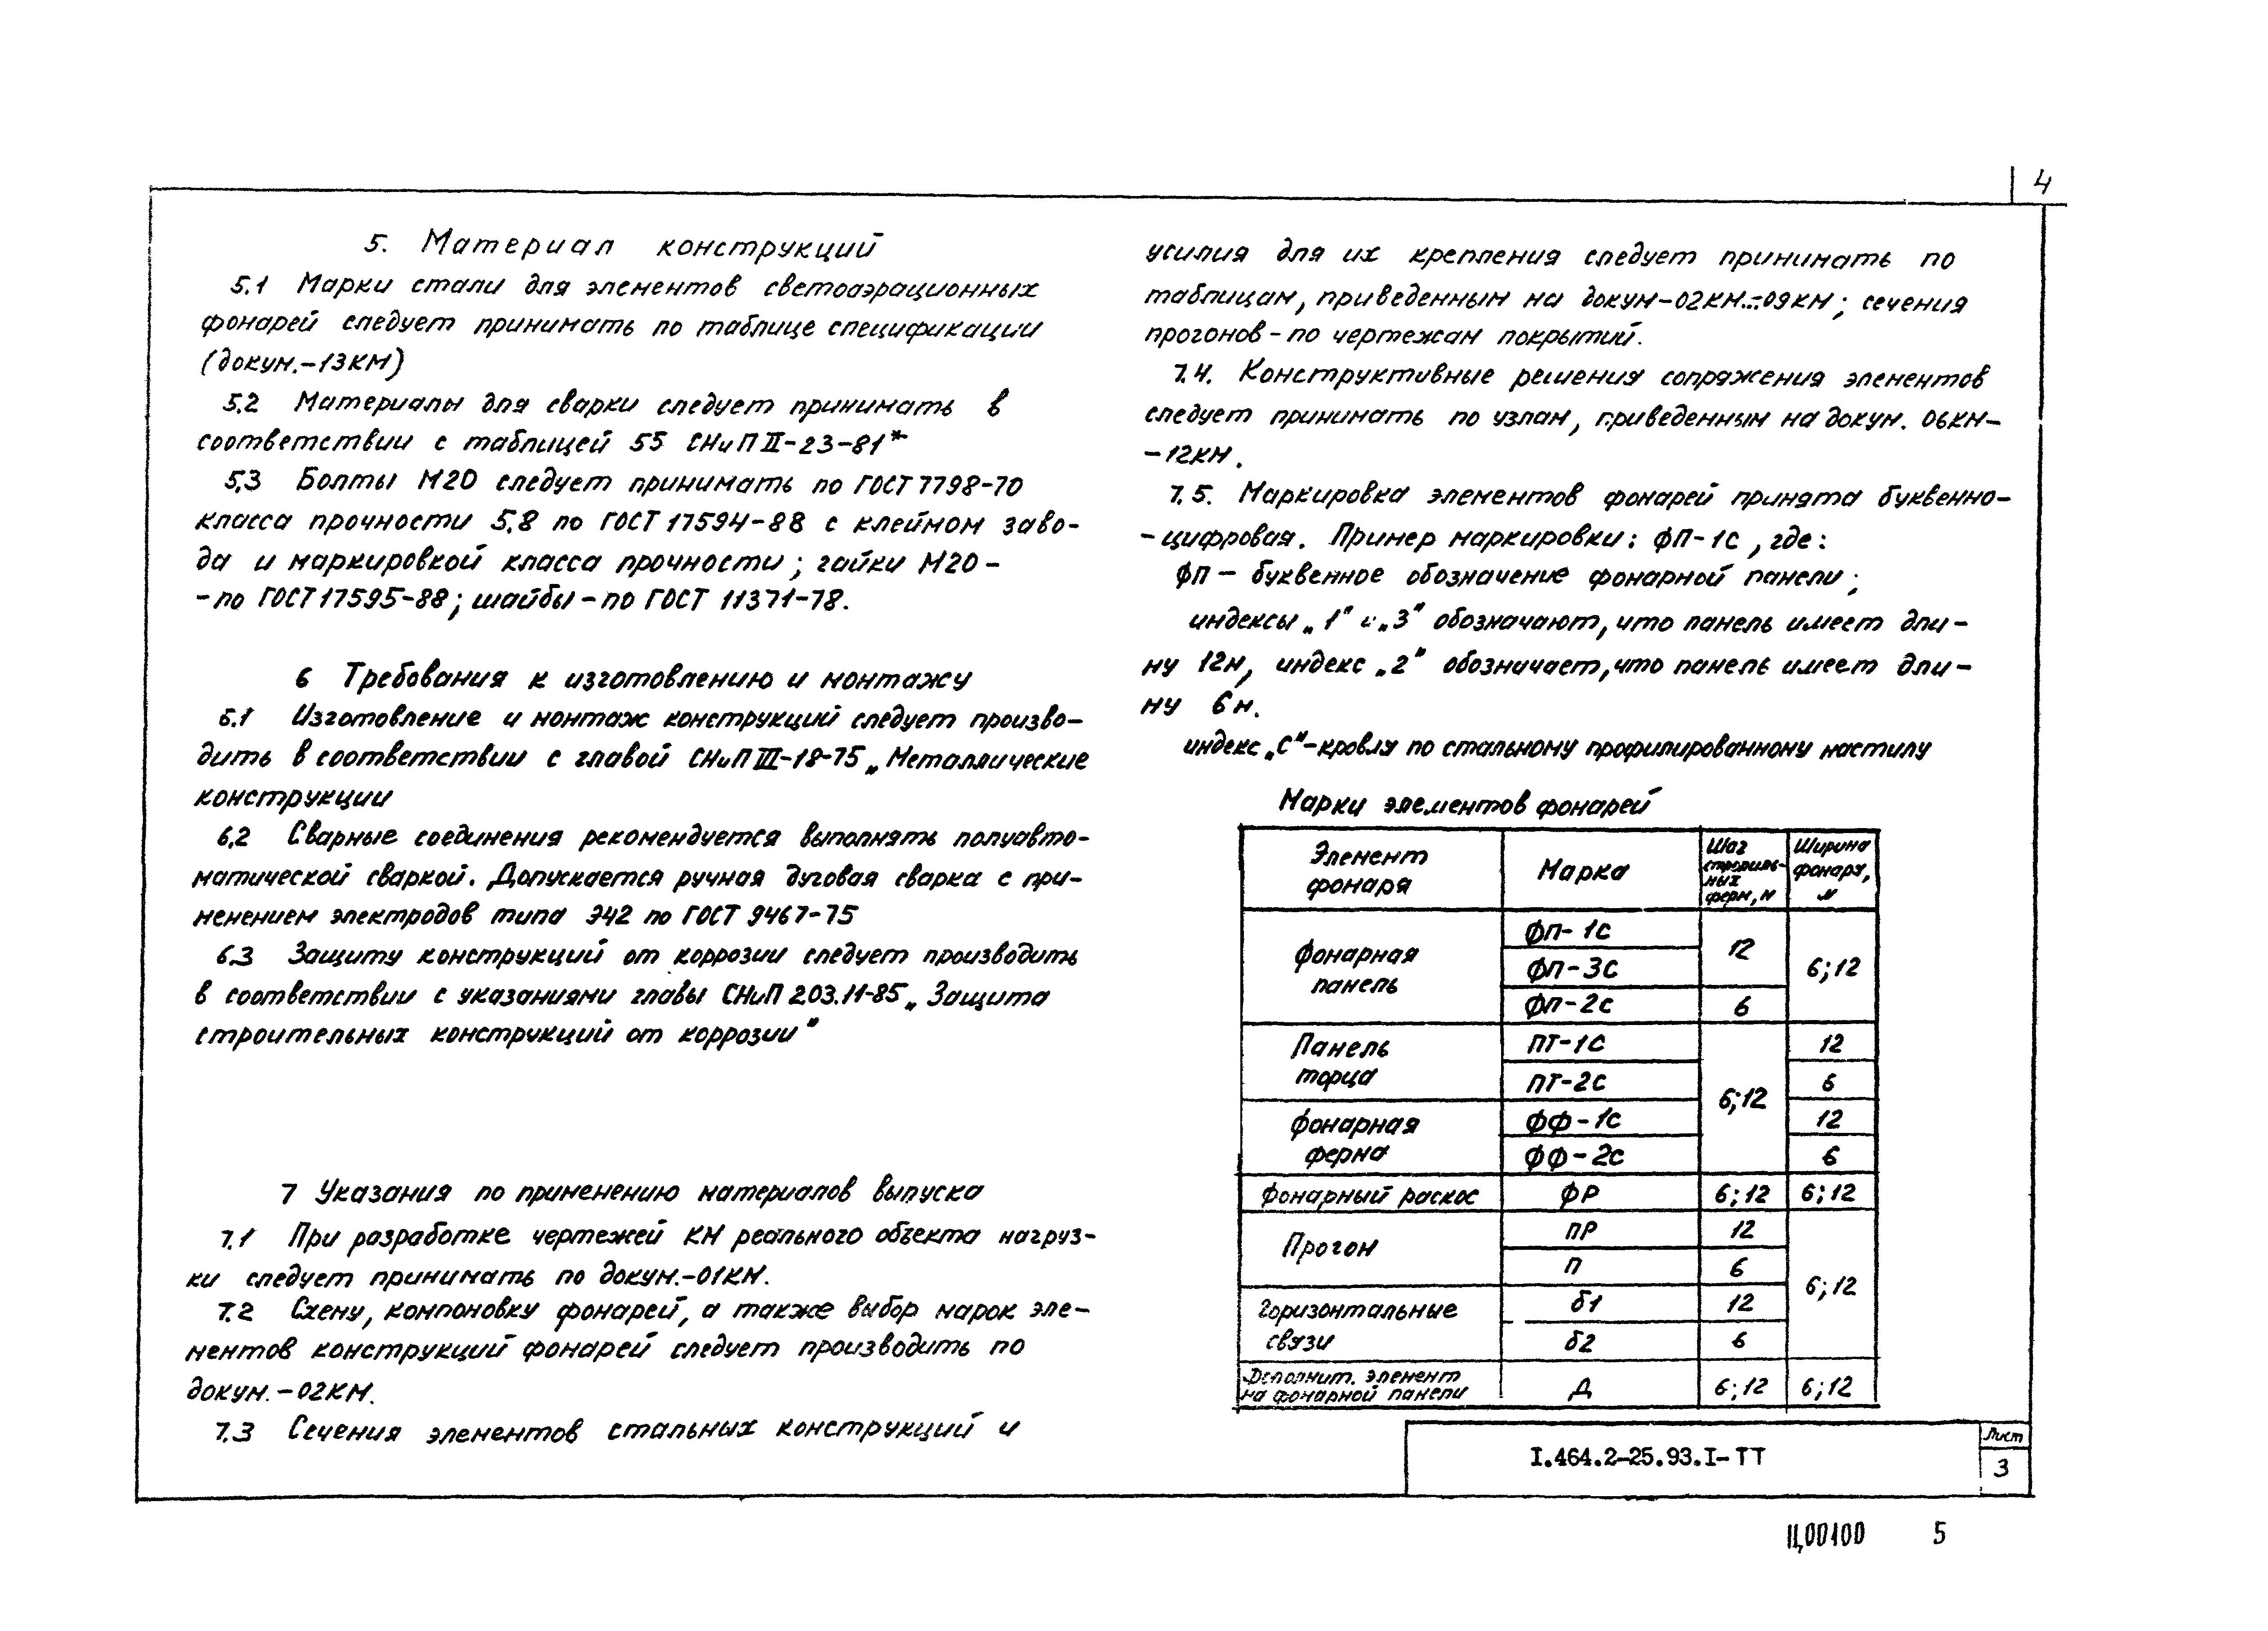 4
5. Материал конструкций
5.1 Марки стали для элементов светоаэрационных
фонарей следует принимать по таблице спецификации
(докум.-13КМ)
5.2 Материалы для сварки следует принимать в
соответствии с таблицей 55 СНиП II-23-81*
5.3 Болты М20 следует принимать по ГОСТ 7798-70
класса прочности 5.8 по ГОСТ 17594-88 с клеймом заво-
да и маркировкой класса прочности; гайки М20 -
- по ГОСТ 17595-88; шайбы - по ГОСТ 11371-78.
6 Требования к изготовлению и монтажу
6.1 Изготовление и монтаж конструкций следует произво-
дить в соответствии с главой СНиП III-18-75 „Металлические
конструкции
6.2 Сварные соединения рекомендуется выполнять полуавто-
матической сваркой. Допускается ручная дуговая сварка с при-
менением электродов типа Э42 по ГОСТ 9467-75
6.3 Защиту конструкций от коррозии следует производить
в соответствии с указаниями главы СНиП 2.03.11-85 „Защита
строительных конструкций от коррозии"
7 Указания по применению материалов выпуска
7.1 При разработке чертежей КМ реального объекта нагруз-
ки следует принимать по докум.-01КМ.
7.2 Схему, компоновку фонарей, а также выбор марок эле-
ментов конструкций фонарей следует производить по
докум.-02КМ.
7.3 Сечения элементов стальных конструкций и
усилия для их крепления следует принимать по
таблицам, приведенным на докум-02КМ...-09КМ; сечения
прогонов - по чертежам покрытий.
7.4. Конструктивные решения сопряжения элементов
следует принимать по узлам, приведенным на докум. 06КМ-
-12КМ.
7.5. Маркировка элементов фонарей принята буквенно-
-цифровая. Пример маркировки: ФП-1С, где:
ФП - буквенное обозначение фонарной панели;
индексы „1" и „3" обозначают, что панель имеет дли-
ну 12м, индекс „2" обозначает, что панель имеет дли-
ну 6м.
индекс „С"-кровля по стальному профилированному настилу
Марки элементов фонарей
Элемент фонаря Марка Шаг стропиль-ных ферм, м Ширина фонаря, м
Фонарная панель ФП-1С 12 6;12
ФП-3С
ФП-2С 6
Панель торца ПТ-1С 6;12 12
ПТ-2С 6
Фонарная ферма ФФ-1С 12
ФФ-2С 6
Фонарный раскос ФР 6;12 6;12
Прогон ПР 12 6;12
П 6
Горизонтальные связи б1 12
б2 6
Дополнит. элемент на фонарной панели Д 6;12 6;12
I.464.2-25.93.I-ТТ
Лист
3
Ц00100 5